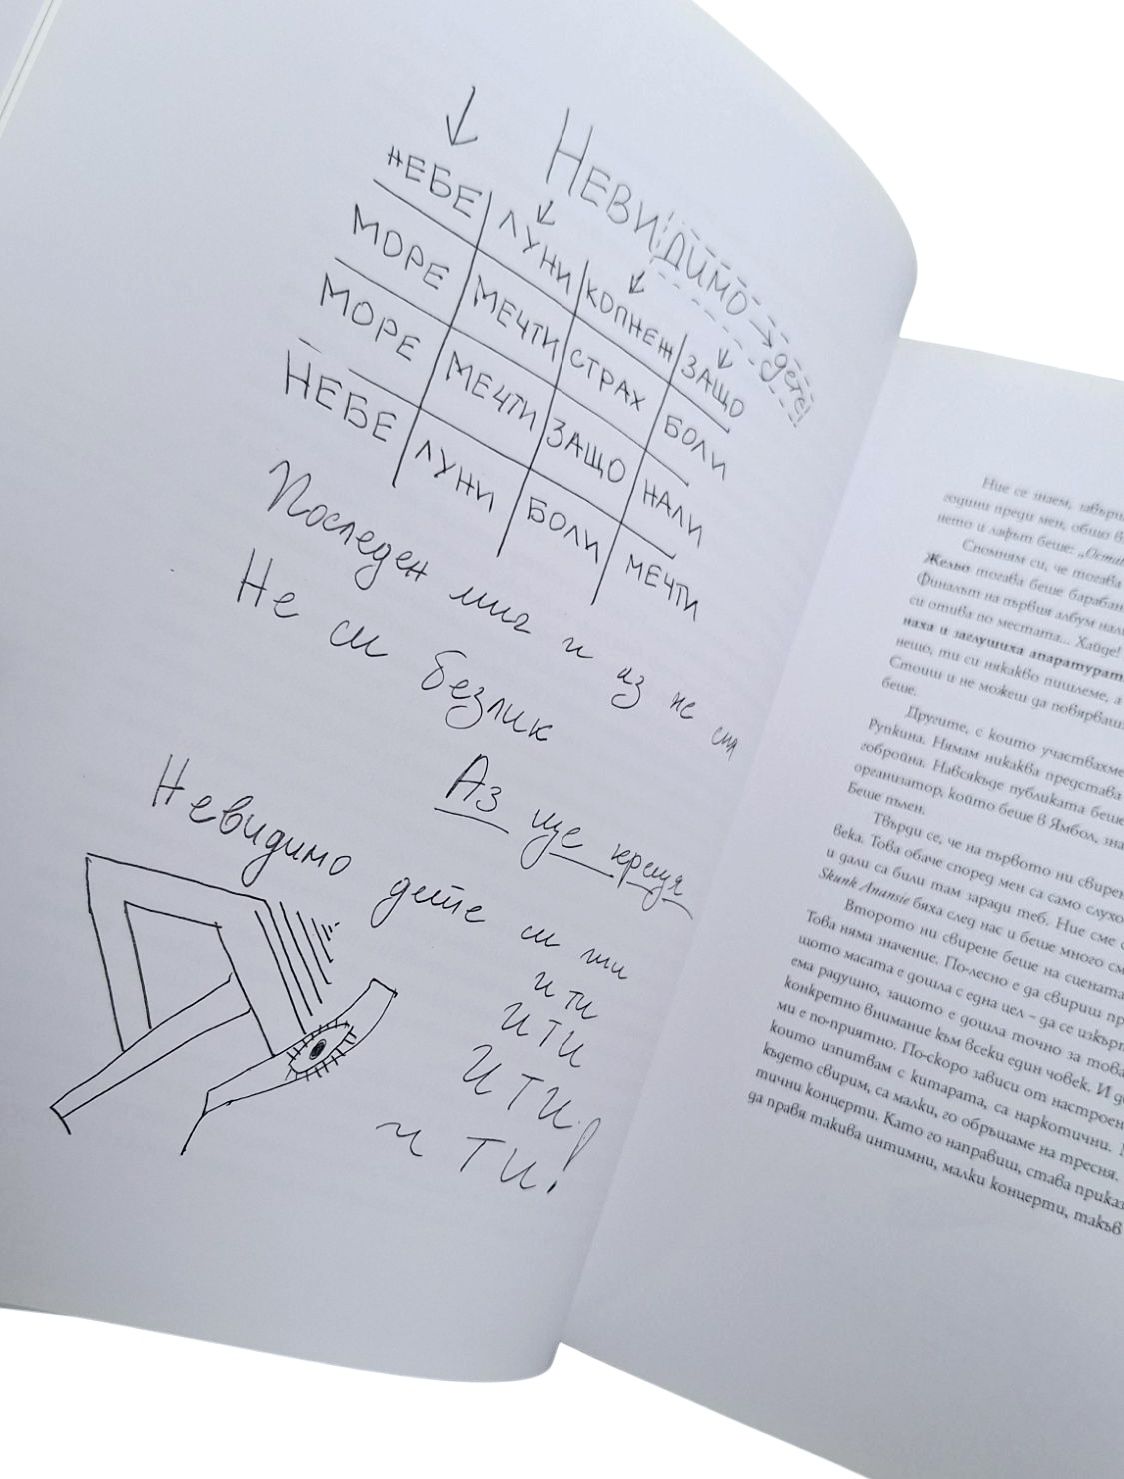 Невидимо → дете!
НЕБЕ ЛУНИ КОПНЕЖ ЗАЩО
МОРЕ МЕЧТИ СТРАХ БОЛИ
МОРЕ МЕЧТИ ЗАЩО НАЛИ
НЕБЕ ЛУНИ БОЛИ МЕЧТИ
Последен миг и аз не съм
Не си безлик
Аз ще крещя
Невидимо дете си ти
и ти
И ТИ
И ТИ!
и ТИ!
Ние се знаем,
години преди мен, общо
нето и лафът беше:
Спомням си, че тогава
Жельо тогава беше барабан
Финалът на първия албум
си отива по местата... Хайде!
наха и заглушиха апаратурат
нещо, ти си някакво пишлеме, а
Стоиш и не можеш да повярваш
беше.
Другите, с които участвахме
Рупкина. Нямам никаква представа
гобройна. Навсякъде публиката беше
организатор, който беше в Ямбол, зна
Беше пълен.
Твърди се, че на първото ни свирен
века. Това обаче според мен са само слухо
и дали са били там заради теб. Ние сме
Skunk Anansie бяха след нас и беше много см
Второто ни свирене беше на сцената
Това няма значение. По-лесно е да свириш пр
щото масата е дошла с една цел – да се изкърт
ема радушно, защото е дошла точно за това
конкретно внимание към всеки един човек. И д
ми е по-приятно. По-скоро зависи от настроен
които изпитвам с китарата, са наркотични.
където свирим, са малки, го обръщаме на тресня.
тични концерти. Като го направиш, става приказ
да правя такива интимни, малки концерти, такъв